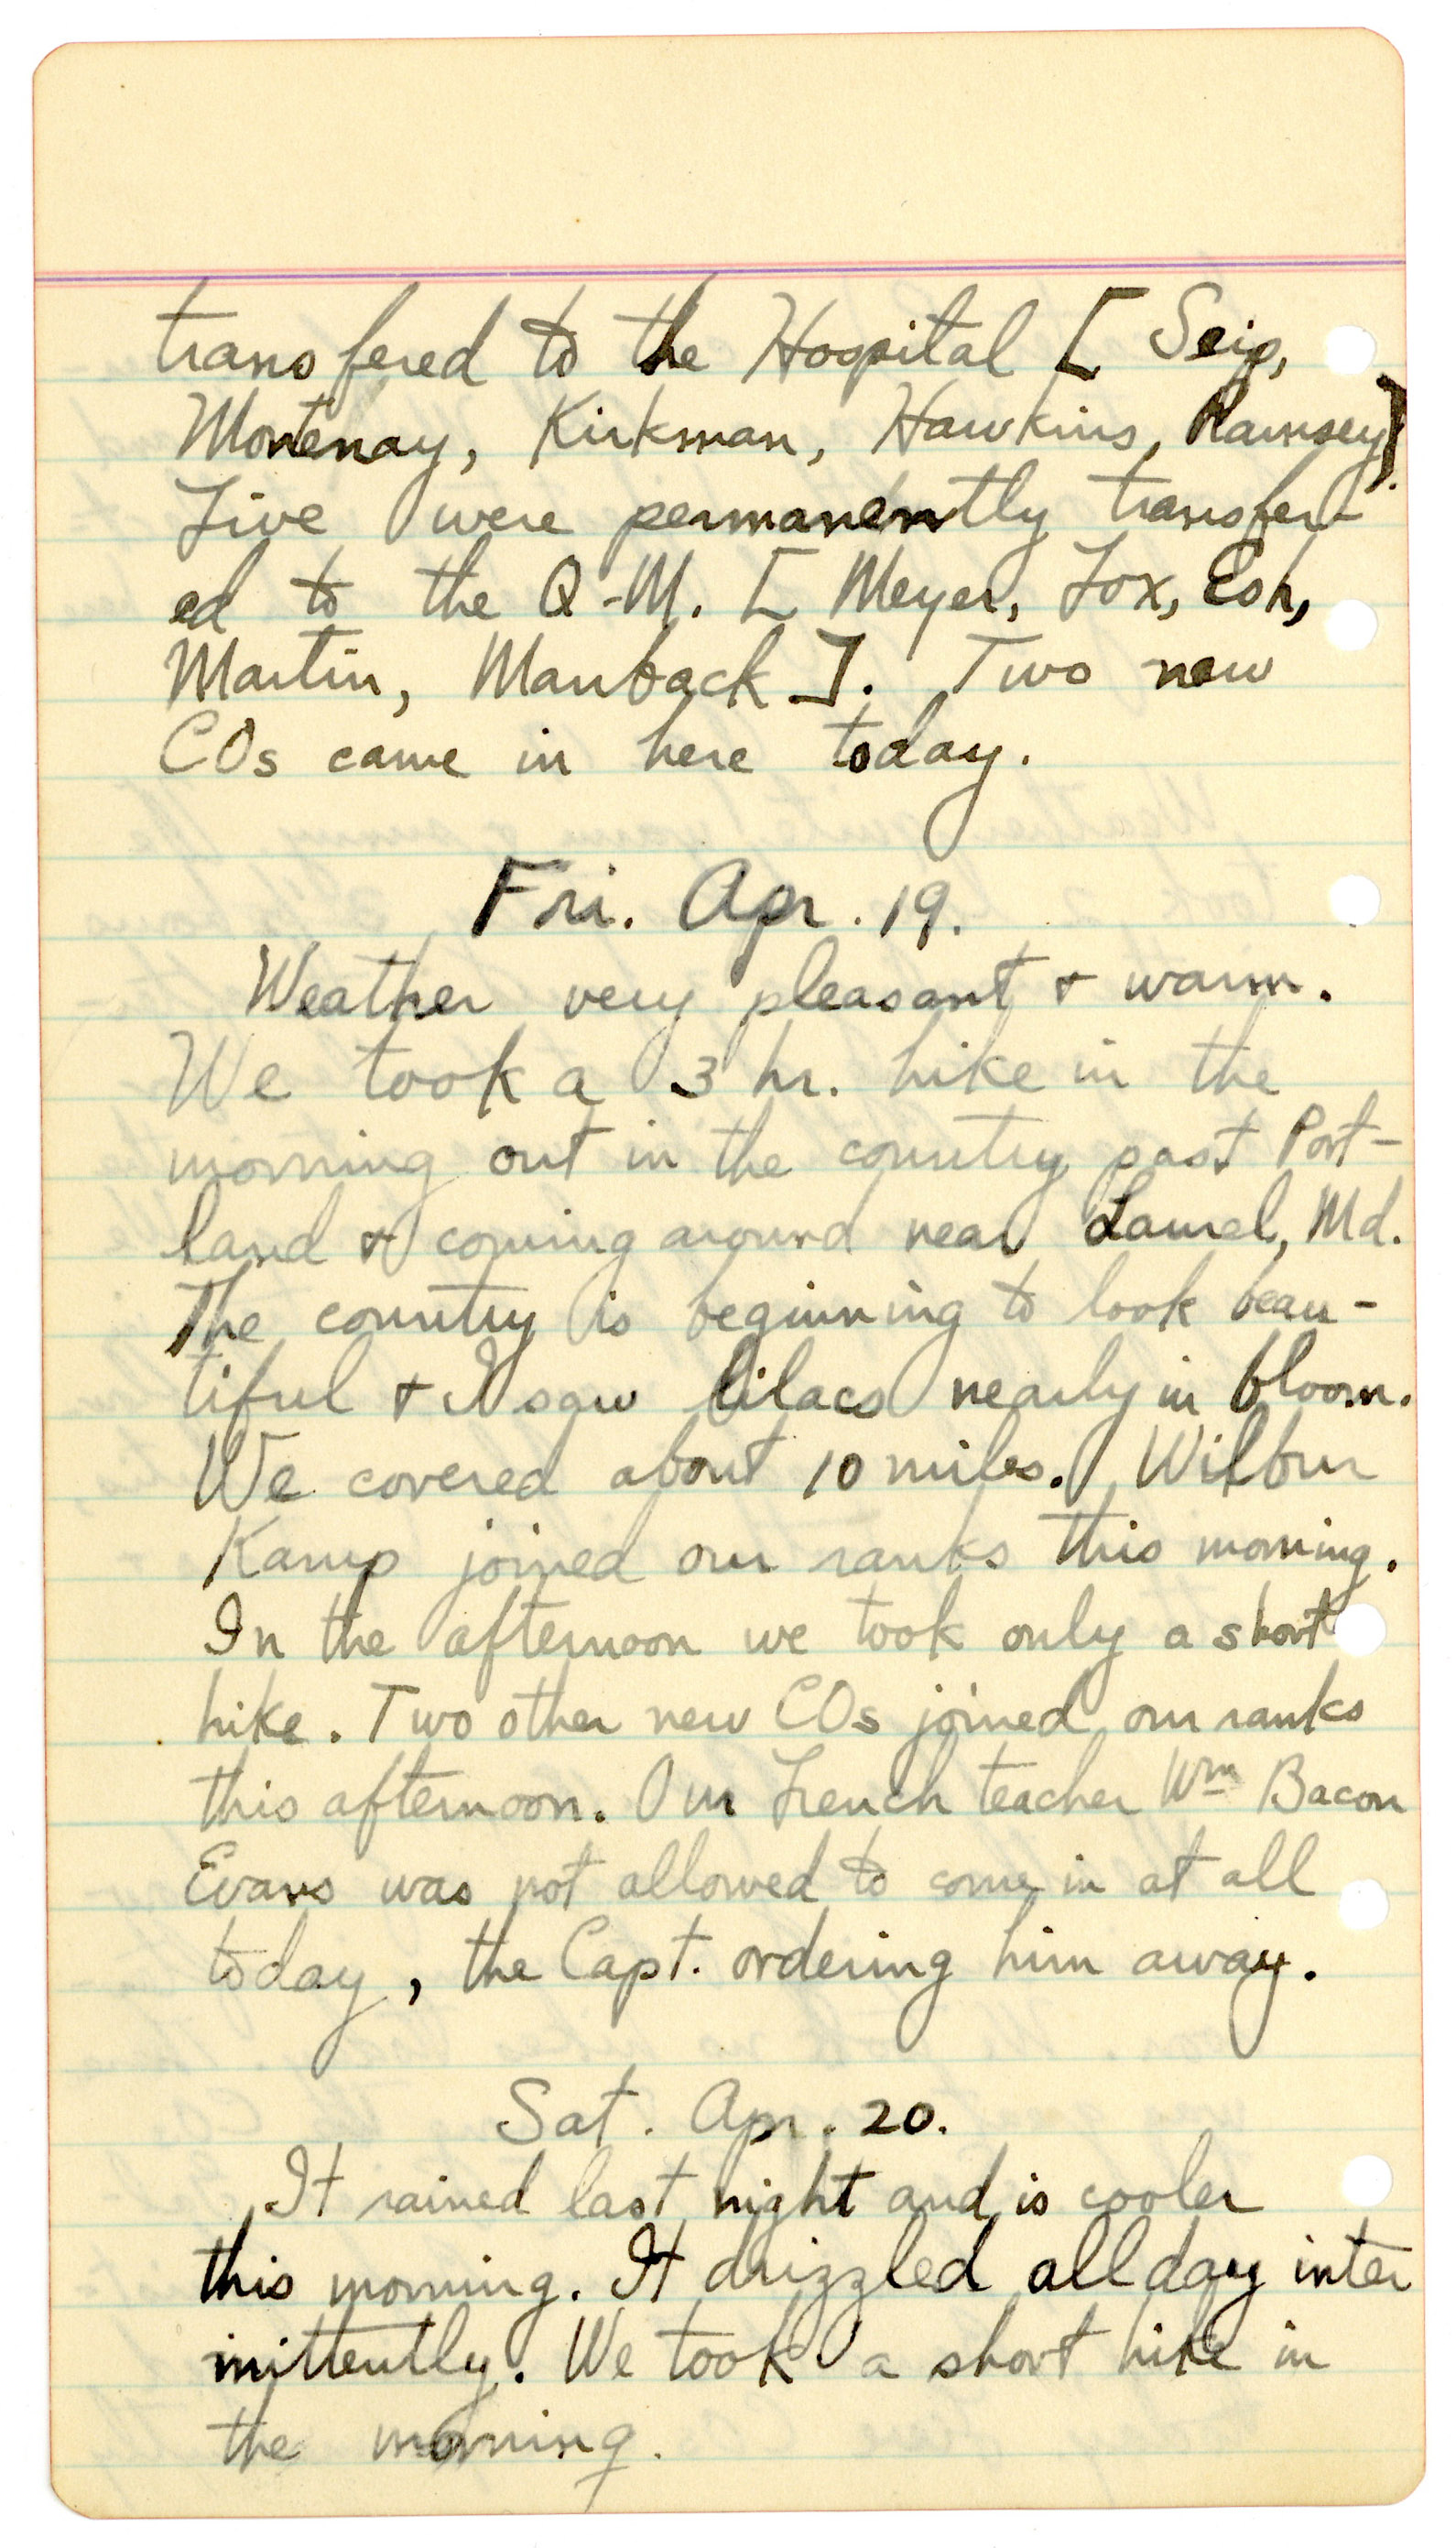 transfered to the Hospital [ Seip,
Montenay, Kirkman, Hawkins, Ramsey].
Five were permanently transfer-
ed to the Q-M. [ Meyer, Fox, Esh,
Martin, Manback ]. Two new
COs came in here today.
Fri. Apr. 19.
Weather very pleasant & warm.
We took a 3 hr. hike in the
morning out in the country past Port-
land & coming around near Laurel, Md.
The country is beginning to look beau-
tiful & I saw lilacs nearly in bloom.
We covered about 10 miles. Wilbur
Kamp joined our ranks this morning.
In the afternoon we took only a short
hike. Two other new COs joined our ranks
this afternoon. Our French teacher Wm Bacon
Evans was not allowed to come in at all
today, the Capt. ordering him away.
Sat. Apr. 20.
It rained last night and is cooler
this morning. It drizzled all day inter
mittently. We took a short hike in
the morning.